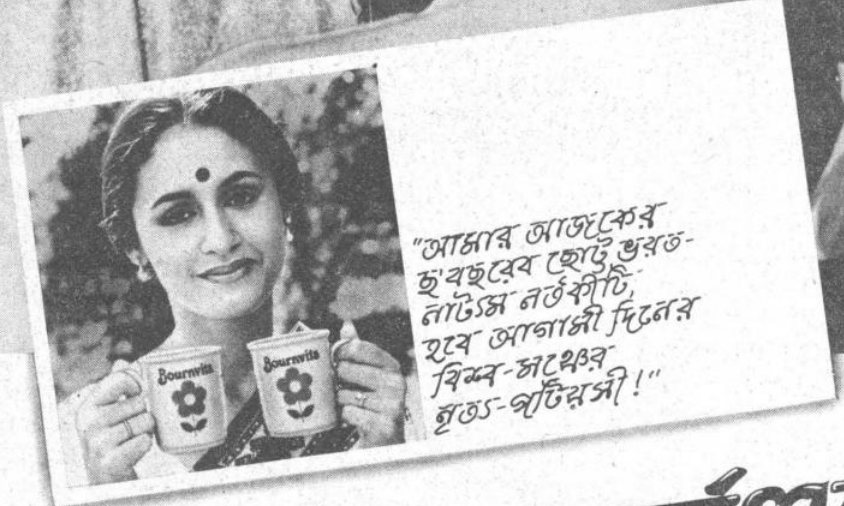 Bournvita
Bournvita
"আমার আজকের
ছ'বছরের ছোট্ট ভরত-
নাট্যম নর্তকীটি,
হবে আগামী দিনের
বিশ্ব-মঞ্চের
নৃত্য-পটিয়সী!"